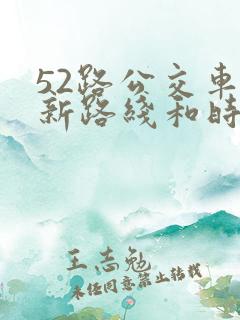 52路公交车
新路线和时
王志勉
未经同意禁止转载